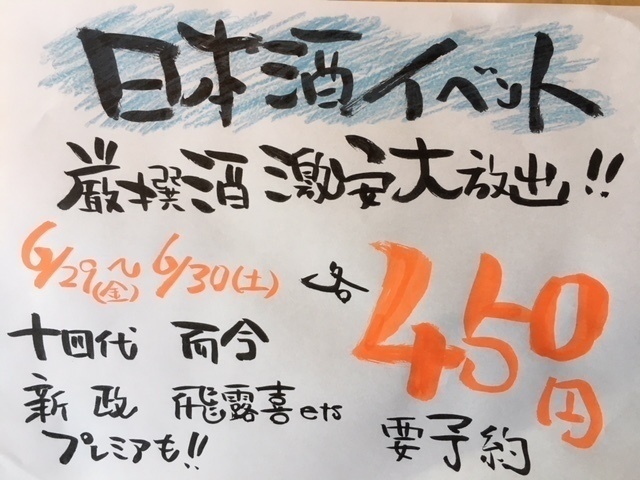 日本酒イベント
厳撰酒 激安大放出!!
6/29(金)~6/30(土) 各450円
十四代 而今
新政 飛露喜ets
プレミアも!!
要予約